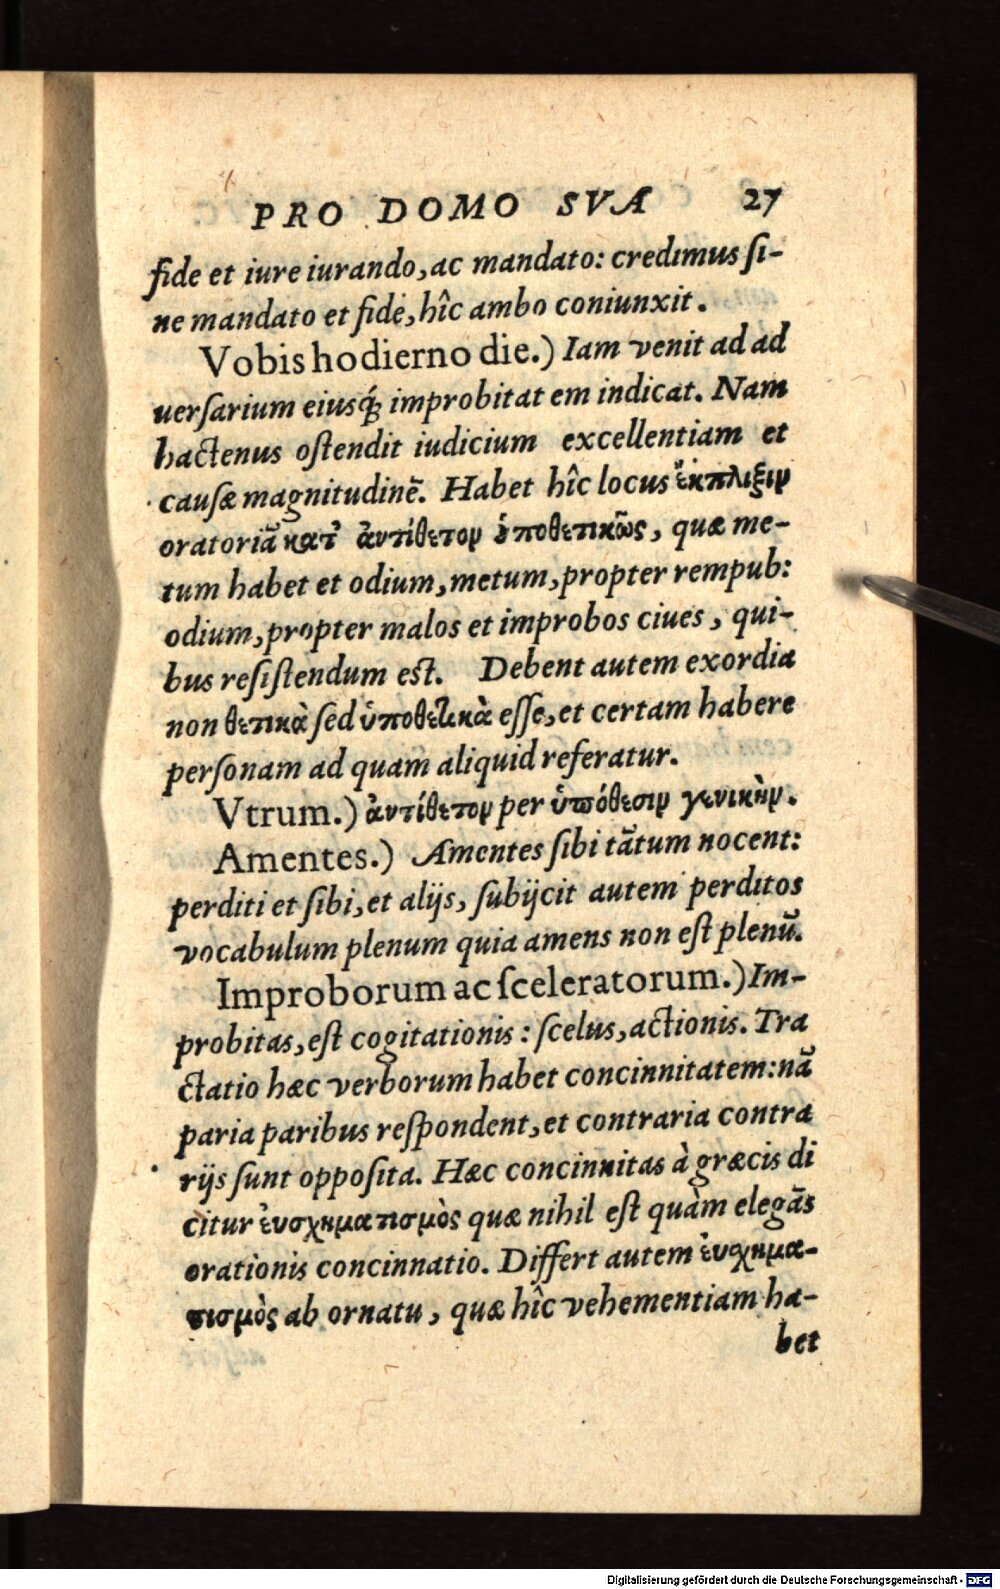 PRO DOMO SVA 27
fide et iure iurando, ac mandato: credimus si-
ne mandato et fide, hîc ambo coniunxit.
Vobis hodierno die.) Iam venit ad ad
uersarium eiusq́; improbitat em indicat. Nam
hactenus ostendit iudicium excellentiam et
causæ magnitudinē. Habet hîc locus ἔκπληξιν
oratoriā κατ' ἀντίθετον ὑποθετικῶς, quæ me-
tum habet et odium, metum, propter rempub:
odium, propter malos et improbos ciues, qui-
bus resistendum est. Debent autem exordia
non θετικὰ sed ὑποθετικὰ esse, et certam habere
personam ad quam aliquid referatur.
Vtrum.) ἀντίθετον per ὑπόθεσιν γενικὴν.
Amentes.) Amentes sibi tātum nocent:
perditi et sibi, et alijs, subijcit autem perditos
vocabulum plenum quia amens non est plenū.
Improborum ac sceleratorum.) Im-
probitas, est cogitationis: scelus, actionis. Tra
ctatio hæc verborum habet concinnitatem: nā
paria paribus respondent, et contraria contra
rijs sunt opposita. Hæc concinnitas à græcis di
citur ἐυσχηματισμὸς quæ nihil est quàm elegās
orationis concinnatio. Differt autem ἐυσχημα-
τισμὸς ab ornatu, quæ hîc vehementiam ha-
bet
Digitalisierung gefördert durch die Deutsche Forschungsgemeinschaft - DFG